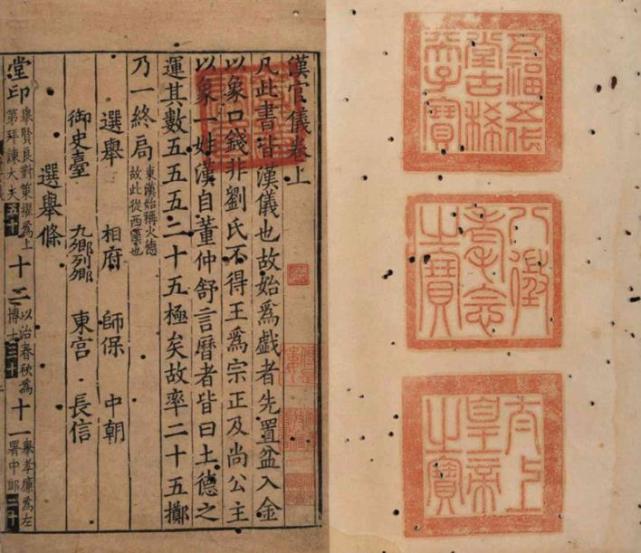 漢官儀卷上
凡此書皆漢儀也故始爲戲者先置盆入金
以象口錢非劉氏不得王爲宗正及尚公主
以象一姓漢自董仲舒言曆者皆曰土德之
運其數五五五二十五極矣故率二十五擲
乃一終局 東漢始稱火德
故此從西漢也
選舉 相府 師保 中朝
御史臺 九卿列卿 東宮 長信
選舉條
堂印 舉賢良對策擢爲上
第拜諫大夫五十
十二 以治春秋爲
博士三十
十一 舉孝廉爲左
署中郎二十
五福五代
堂古稀
天子寶
八徵
耄念
之寶
太上
皇帝
之寶